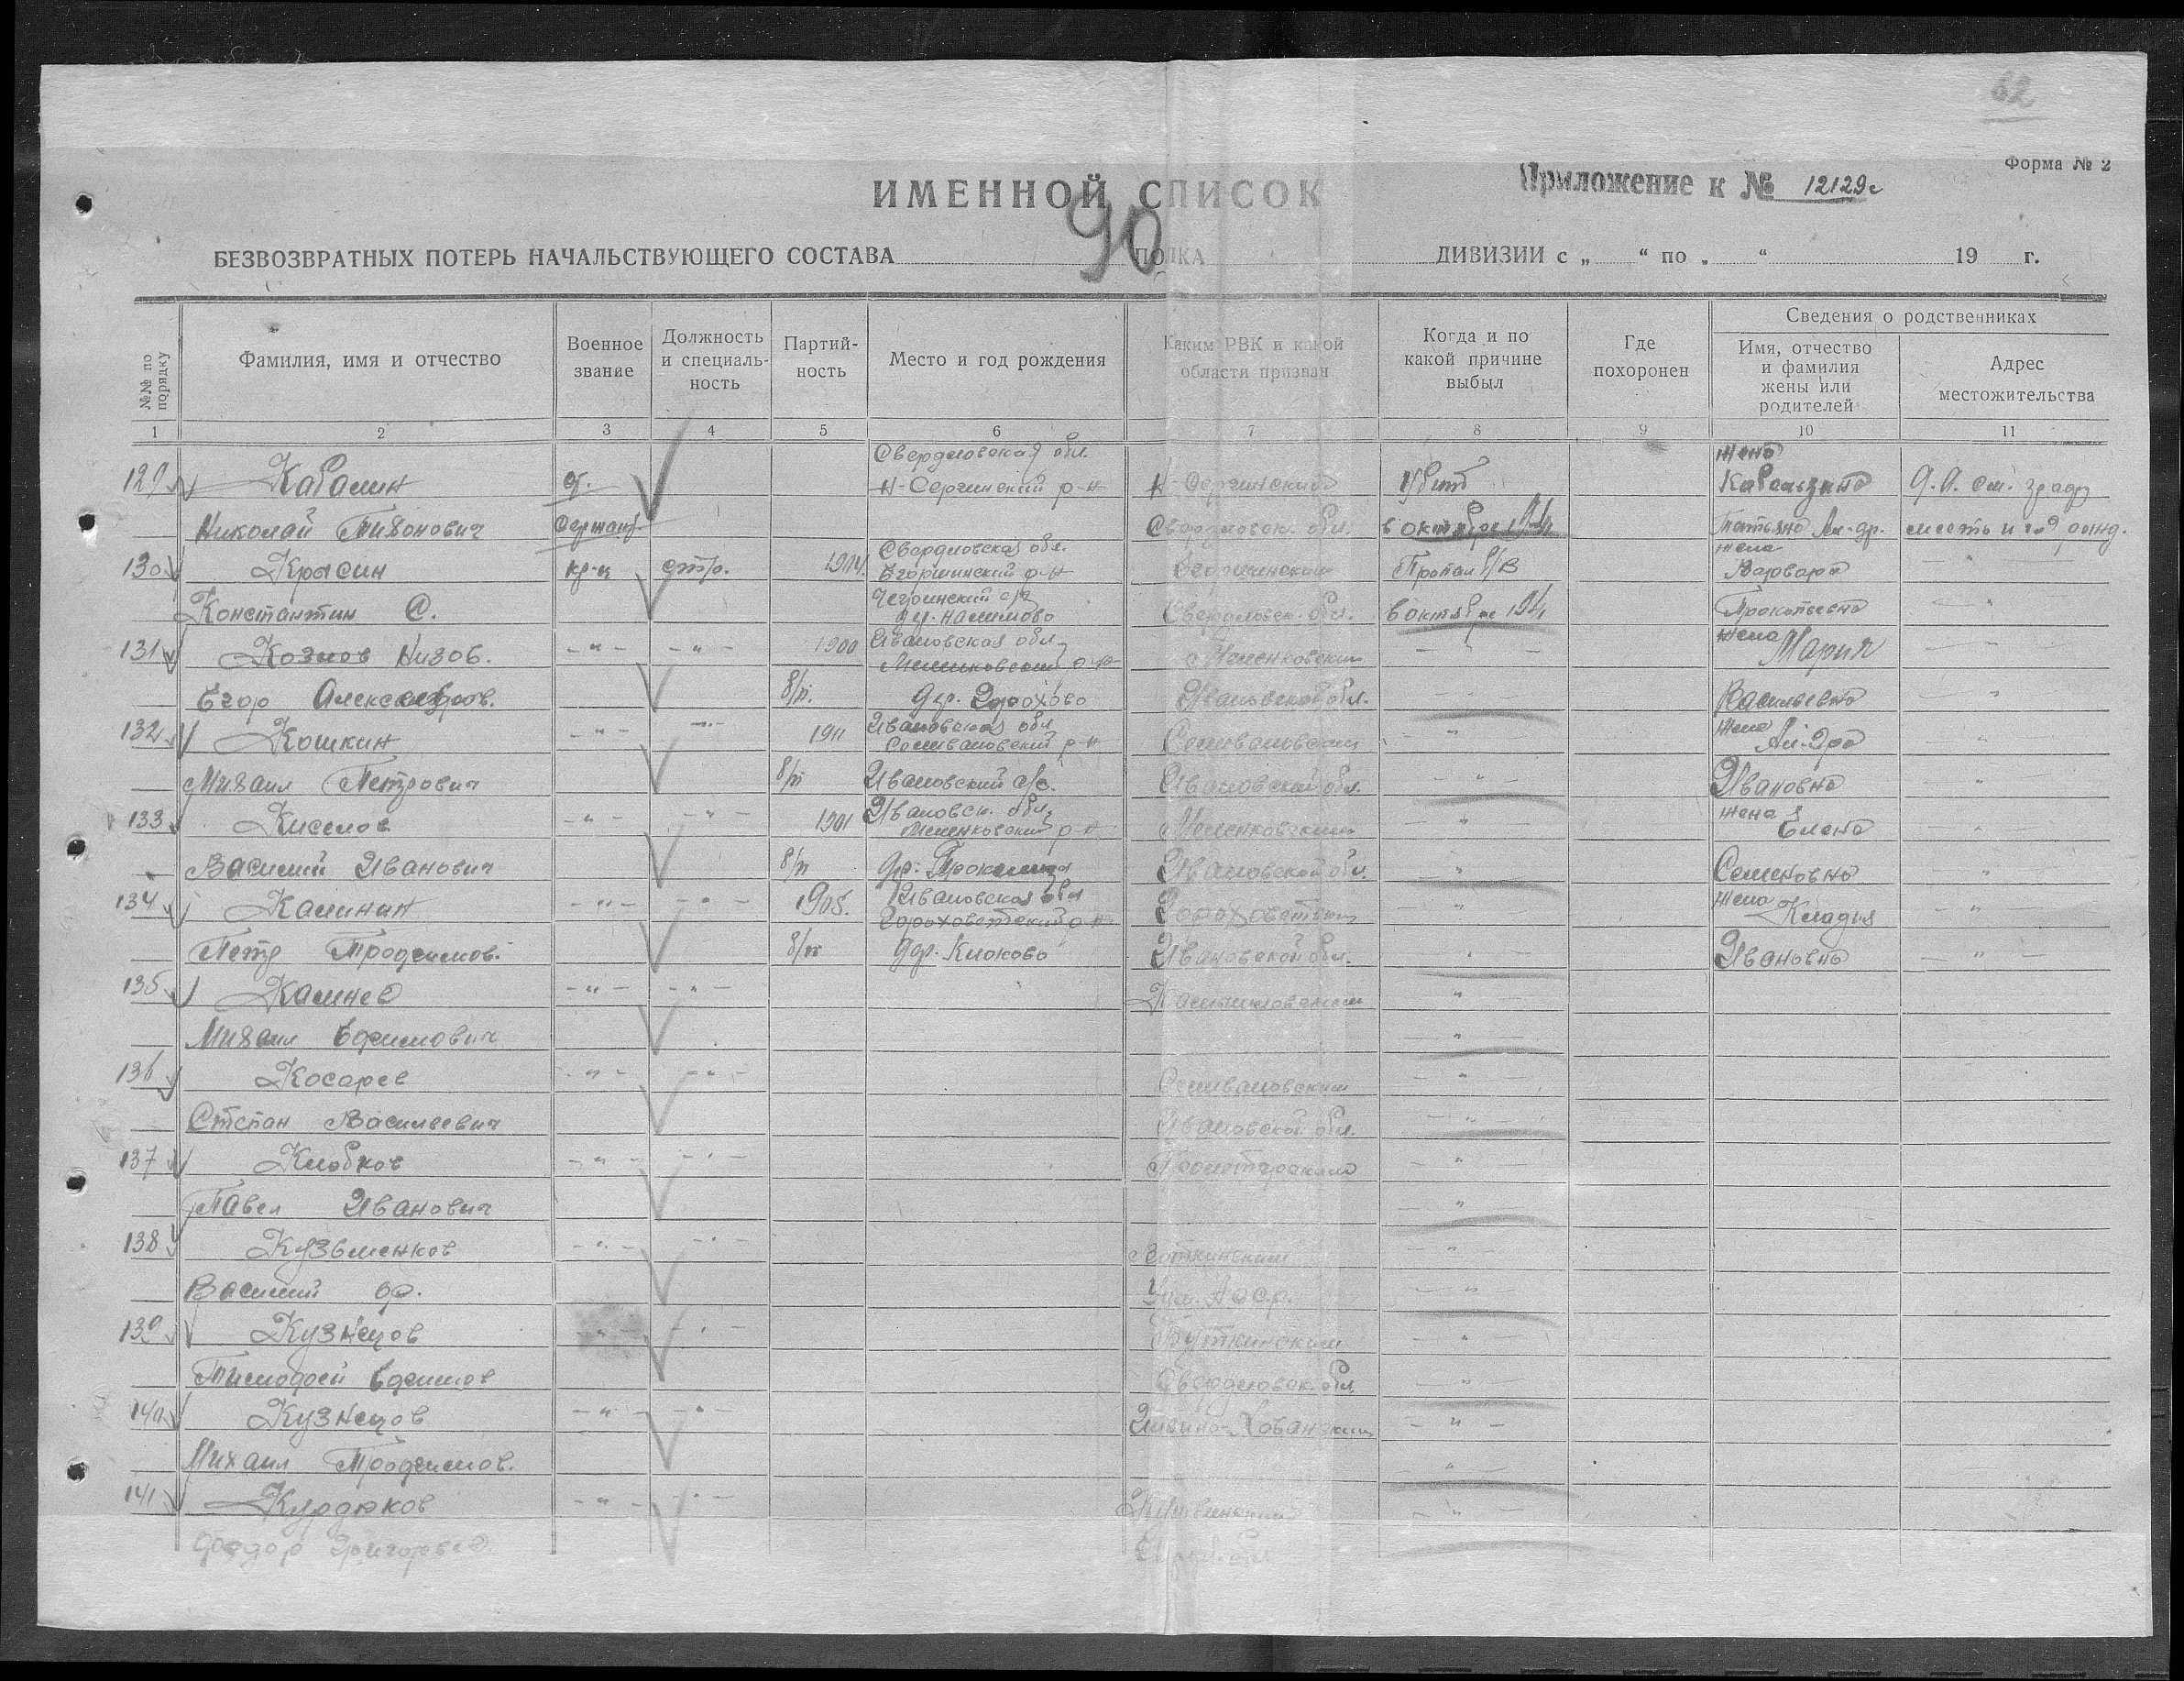 62
Форма № 2
Приложение к № 12129с
ИМЕННОЙ СПИСОК
90
БЕЗВОЗВРАТНЫХ ПОТЕРЬ НАЧАЛЬСТВУЮЩЕГО СОСТАВА ПОЛКА ДИВИЗИИ с „ “ по „ “ 19 г.
№№ по порядку
Фамилия, имя и отчество
Военное звание
Должность и специаль-ность
Партий-ность
Место и год рождения
Каким РВК и какой области призван
Когда и по какой причине выбыл
Где похоронен
Сведения о родственниках
Имя, отчество и фамилия жены или родителей
Адрес местожительства
1 2 3 4 5 6 7 8 9 10 11
Свердловская обл. жена
129 Кабалин ст. Н-Сергинский р-н Н-Сергинский Убит
Николай Тихонович Сержант Свердловск. обл. в октябре 194 Татьяна Ал-др.
Свердловская обл. жена
130 Крысин кр-ц стр. 1904 Егоршинский р-н Егоршинский Пропал б/в Варвара
Константин С. Свердловск. обл. в октябре 194 Прокопьевна
131 Козлов Низов. - " - - " - 1900 Ивановская обл. Меленковский р-н Меленковским жена Мария
Егор Александров. б/п. др. Ивановской обл. Васильевна
132 Кошкин - " - - " - 1911 Ивановская обл. Селивановский р-н Селивановским - " - жена Ал-дра
Михаил Петрович б/п Ивановский с/с. Ивановской обл. - " - Ивановна
133 Киселов - " - - " - 1901 Ивановск. обл. Меленковский р-н Меленковским - " - жена Елена
Василий Иванович б/п др. Ивановской обл. - " - Семеновна
134 Калинин - " - - " - 1905. Ивановская обл Гороховетский р-н Гороховетским - " - жена Клавдия
Петр Трофимов. б/п дер. Клоково Ивановской обл. - " - Ивановна
135 Калинев - " - - " - - " -
Михаил Ефимович - " -
136 Косарев - " - - " - Селивановским - " -
Степан Васильевич Ивановской обл. - " -
137 Клобков - " - - " - - " -
Павел Иванович - " -
138 Кузьменков - " - - " - Воткинским - " -
Василий Еф. Удм. АССР. - " -
139 Кузнецов - " - - " - Буткинским - " -
Тимофей Ефимов Свердловск. обл. - " -
140 Кузнецов - " - - " - - " -
Михаил Трофимов. - " -
141 Курдюков - " - - " - - " -
Федор Григорьев.